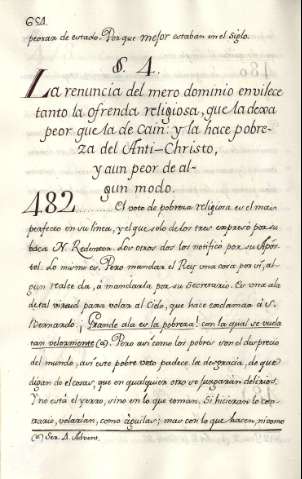 654.
peoran de estado. Porque mejor estaban en el siglo.
§. 4.
La renuncia del mero dominio envilece
tanto la ofrenda religiosa, que la dexa
peor que la de Cain: y la hace pobre-
za del Anti-Christo,
y aun peor de al-
gun modo.
482 El voto de pobreza religiosa es el mas
perfecto en su linea, y el que solo de los tres expresó por su
boca N. Redentor. Los otros dos los notificó por su Apos-
tol. Lo mismo es. Pero mandar el Rey una cosa por sí, al-
gun realce da, á mandarla por su Secretario. Es una ala
de tal virtud para volar al Cielo, que hace exclamar á S.
Bernardo: ¡Grande ala es la pobreza! con la qual se vuela
tan velozmente (a). Pero asi como los pobres son el desprecio
del mundo, asi este pobre voto padece la desgracia, de que
digan de el cosas, que en qualquiera otro se juzgarian delirios.
Y no está el yerro, sino en lo que toman. Si hicieran lo con-
trario, volarian, como aguilas; mas con lo que hacen, ni como
(a) Ser. 4. Advent.